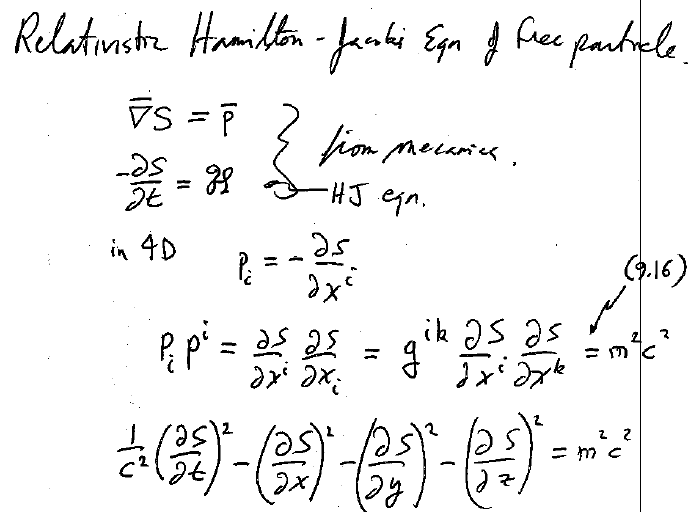 Relativistic Hamilton-Jacobi Eqn of free particle.
∇̄S = p̄
from mechanics.
-∂S/∂t = ℋ
HJ eqn.
in 4D pᵢ = -∂S/∂xⁱ
(9.16)
pᵢpⁱ = ∂S/∂xⁱ ∂S/∂xᵢ = gⁱᵏ ∂S/∂xⁱ ∂S/∂xᵏ = m²c²
1/c² (∂S/∂t)² - (∂S/∂x)² - (∂S/∂y)² - (∂S/∂z)² = m²c²